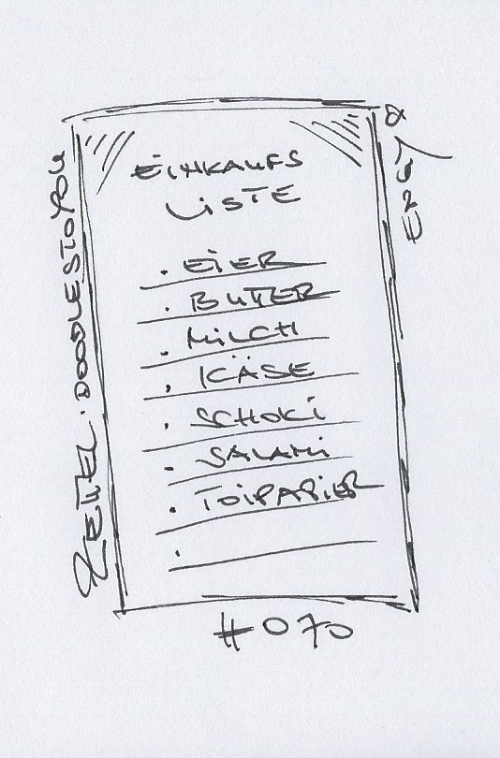 EINKAUFS
LISTE
· EIER
· BUTTER
· MILCH
· KÄSE
· SCHOKI
· SALAMI
· TOIPAPIER
·
ZETTEL.DOODLESTOYOU
#070